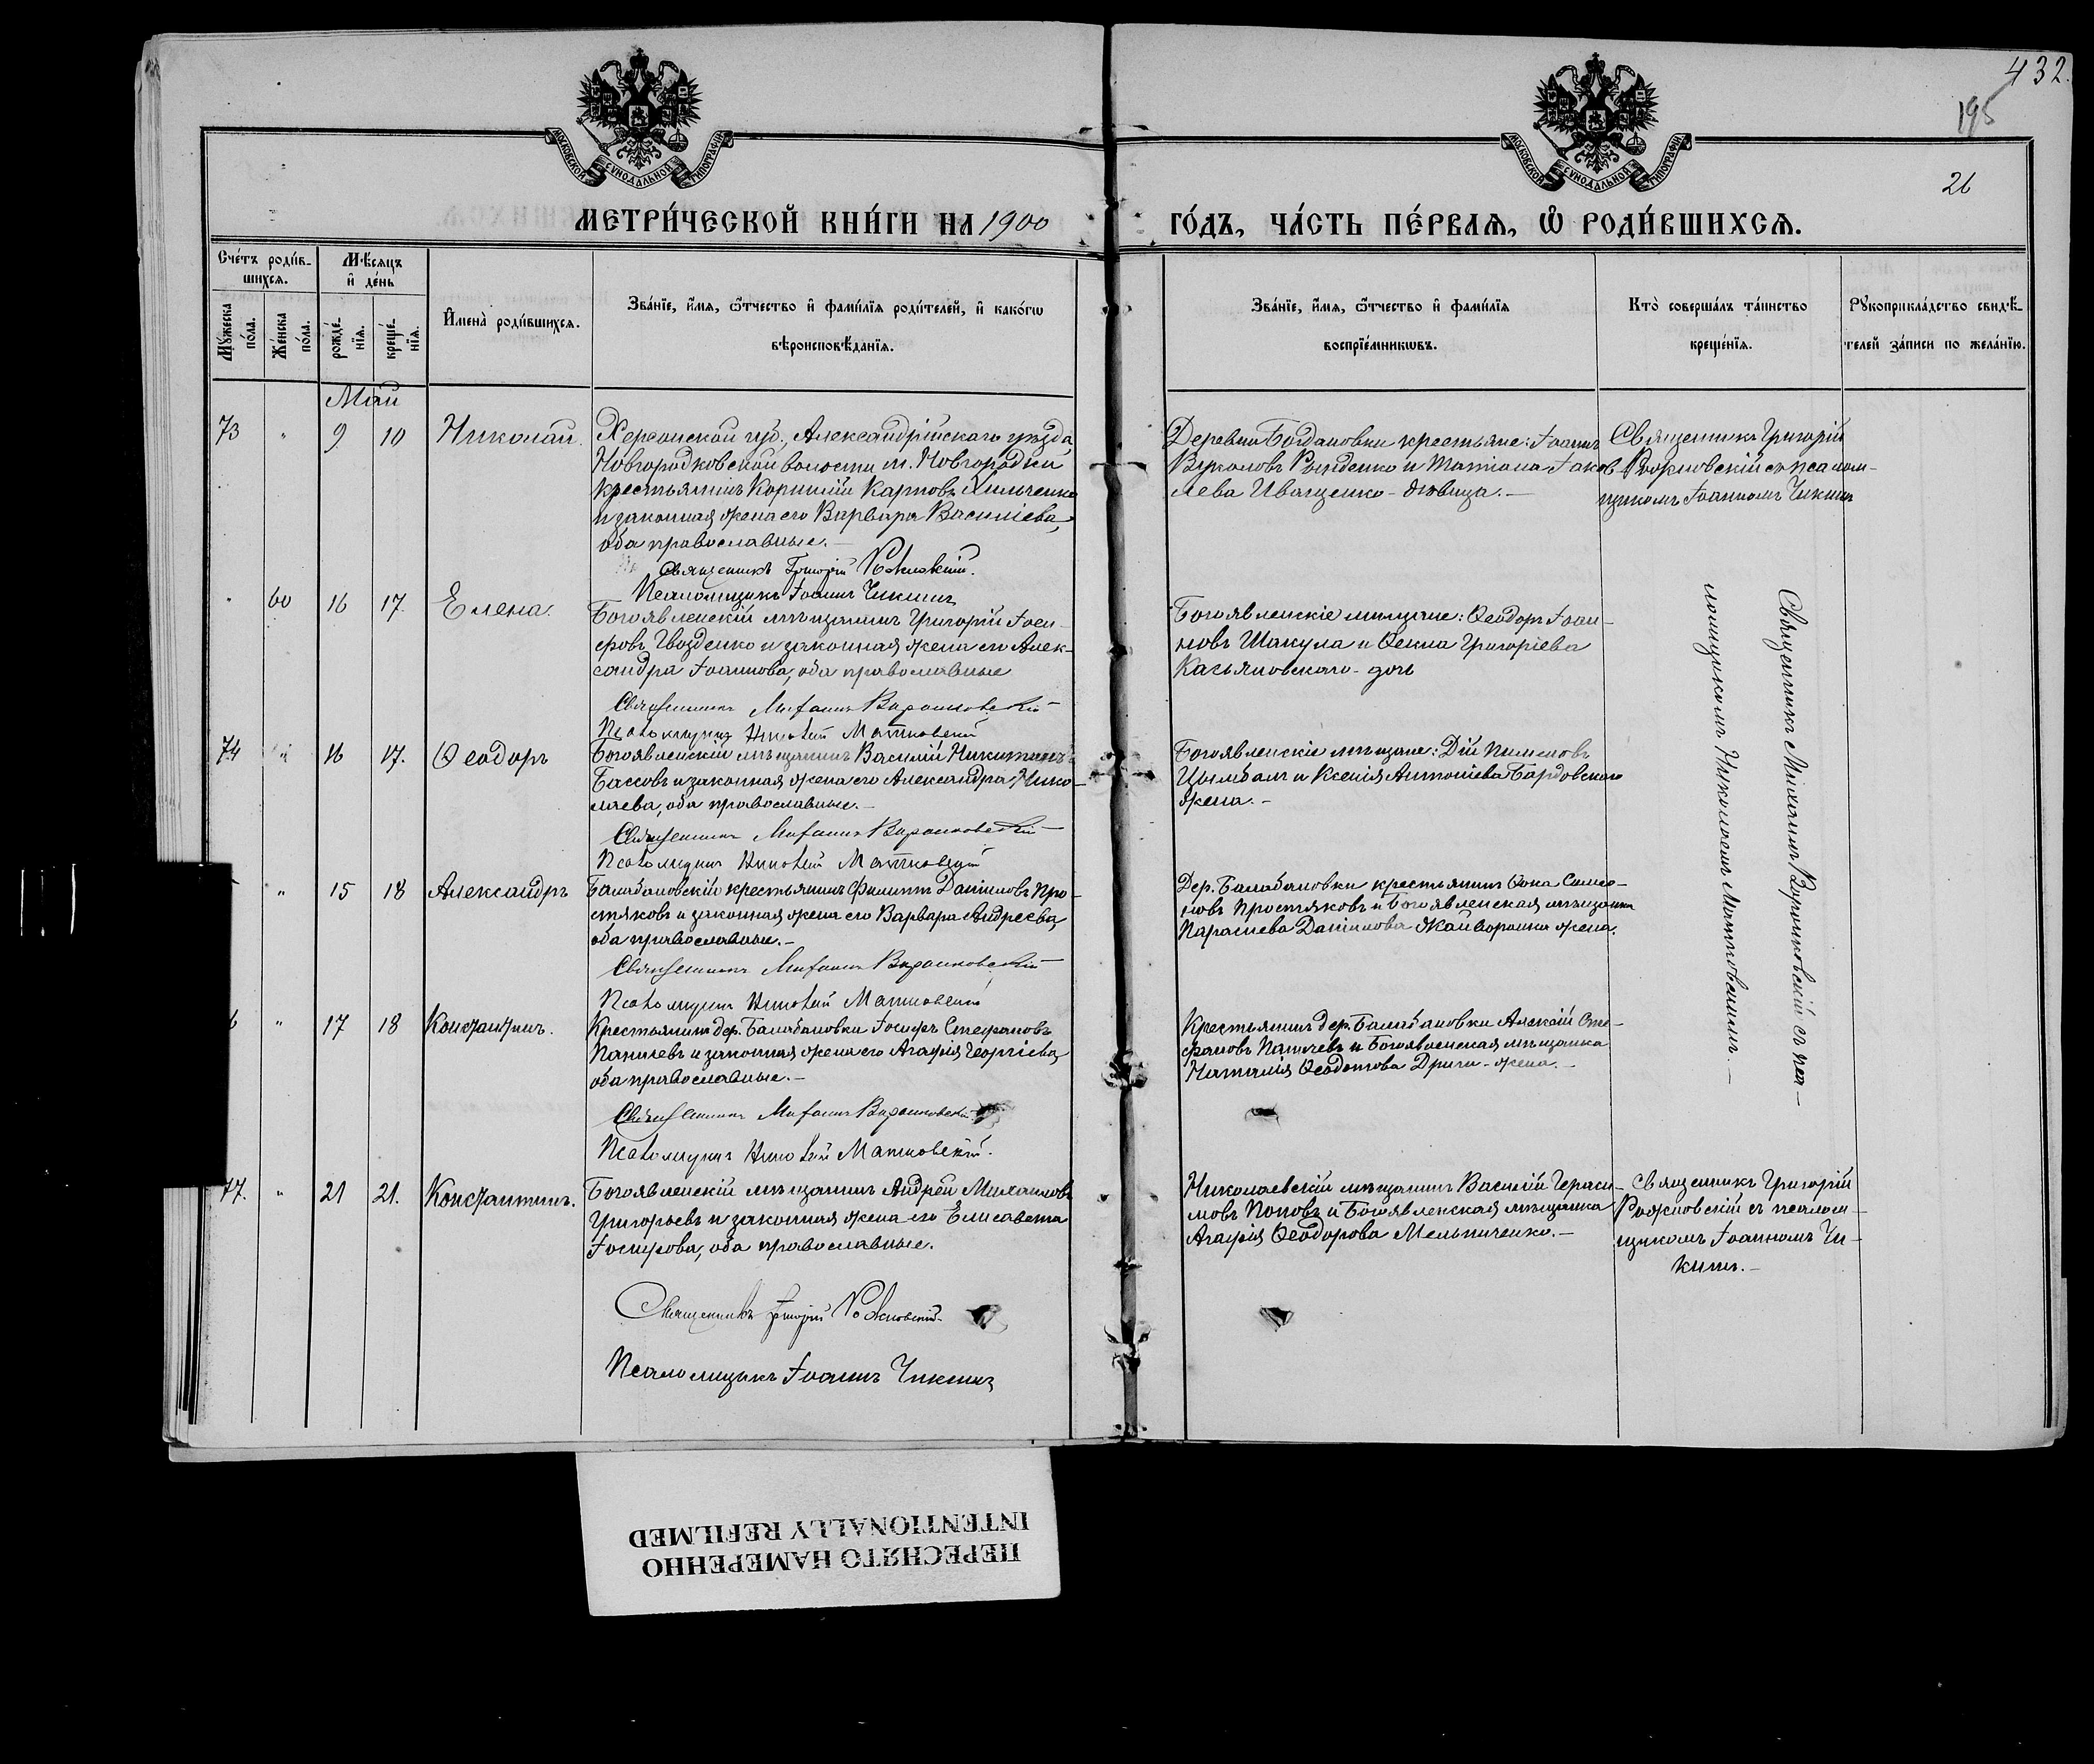 432.
195
26
МОСКОВСКОЙ СѴНОДАЛЬНОЙ ТИПОГРАФІИ
МОСКОВСКОЙ СѴНОДАЛЬНОЙ ТИПОГРАФІИ
МЕТРИ́ЧЕСКОЙ КНИ́ГИ НА 1900
ГО́ДЪ, ЧА́СТЬ ПЕ́РВАѦ, Ѿ РОДИ́ВШИХСѦ.
Сче́тъ роди́в-
шихсѧ.
Мѣ́сѧцъ
и҆ де́нь
Мꙋ́жеска
по́ла.
Же́нска
по́ла.
рожде́-
нїѧ.
креще́-
нїѧ.
И҆мена̀ роди́вшихсѧ.
Зва́нїе, и҆́мѧ, ѻ҆́тчество и҆ фами́лїѧ роди́телей, и҆ како́гѡ
вѣроисповѣ́данїѧ.
Зва́нїе, и҆́мѧ, ѻ҆́тчество и҆ фами́лїѧ
воспрїе́мникѡвъ.
Кто̀ соверша́лъ та́инство
креще́нїѧ.
Рꙋкоприкла́дство свидѣ́-
телей за́писи по жела́нїю.
Май
73 " 9 10 Николай.
Херсонской губ., Александрійскаго уѣзда
Новгородковской волости м. Новгородки
крестьянинъ Корнилій Карповъ Хильченко
и законная жена его Варвара Василіева,
оба православные.—
Священникъ Григорій Рожновскій.
Псаломщикъ Іоаннъ Чикинъ
Деревни Богдановки крестьяне: Іоаннъ
и Татіана Іаков-
лева Иващенко - дѣвица.—
Священникъ Григорій
Рожновскій съ псалом-
щикомъ Іоанномъ Чикинъ
" 60 16 17. Елена.
Богоявленскій мѣщанинъ Григорій Іоси-
фовъ Гвозденко и законная жена его Алек-
сандра Іоаннова, оба православные
Священникъ Михаилъ Воронковскій
Псаломщикъ Николай Матковскій
Богоявленскіе мѣщане: Ѳеодоръ Іоан-
новъ Шакула и Ѳекла Григоріева
Касьяновскаго - дочь
74 16 17. Ѳеодоръ
Богоявленскій мѣщанинъ Василій Никитинъ
Бассовъ и законная жена его Александра Нико-
лаева, оба православные.—
Священникъ Михаилъ Воронковскій
Псаломщикъ Николай Матковскій
Богоявленскіе мѣщане: Дій Пименовъ
Цымбалъ и Ксенія Антоніева Бардовскаго
жена.—
" 15 18 Александръ
Балабановскій крестьянинъ Филиппъ Даніиловъ Про-
стяковъ и законная жена его Варвара Андреева,
оба православные.—
Священникъ Михаилъ Воронковскій
Псаломщикъ Николай Матковскій
Дер. Балабановки крестьянинъ Ѳома Симео-
новъ Простяковъ и Богоявленская мѣщанка
Параскева Даніилова Жайворонка жена.
6 " 17 18 Константинъ.
Крестьянинъ дер. Балабановки Іосифъ Стефановъ
Паничевъ и законная жена его Агафія Георгіева,
оба православные.—
Священникъ Михаилъ Воронковскій
Псаломщикъ Николай Матковскій.
Крестьянинъ дер. Балабановки Алексій Сте-
фановъ Паничевъ и Богоявленская мѣщанка
Наталія Ѳеодотова Дриги - жена.—
Священникъ Михаилъ Воронковскій съ пса-
ломщикомъ Николаемъ Матковскимъ.—
77. " 21 21. Константинъ.
Богоявленскій мѣщанинъ Андрей Михаиловъ
Григорьевъ и законная жена его Елисавета
Іосифова, оба православные.
Священникъ Григорій Рожновскій
Псаломщикъ Іоаннъ Чикинъ
Николаевскій мѣщанинъ Василій Гераси-
мовъ Поповъ и Богоявленская мѣщанка
Агафія Ѳеодорова Мельниченко.—
Священникъ Григорій
Рожновскій съ псалом-
щикомъ Іоанномъ Чи-
кинъ.—
ПЕРЕСНЯТО НАМЕРЕННО
INTENTIONALLY REFILMED